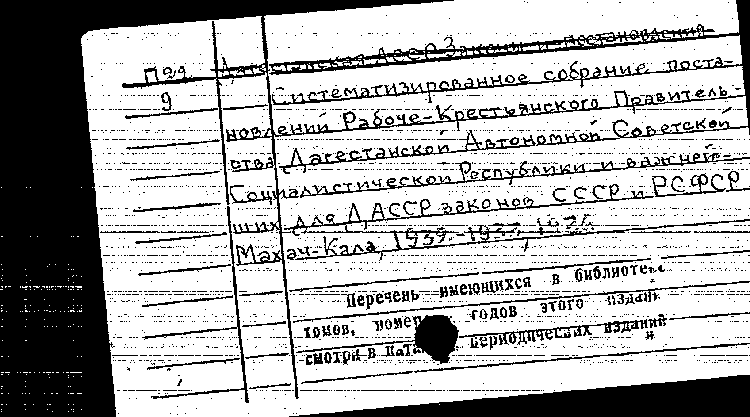 П22 Дагестанская АССР. Закони и постановления
9 Систематизированное собрание поста-
новлений Рабоче-Крестьянского Правитель-
ства Дагестанской Автономной Советской
Социалистической Республики и важней-
ших для ДАССР законов СССР и РСФСР
Махач-Кала,
Перечень имеющихся в библиотеке
томов, годов этого издан
смотри в периодических изданий